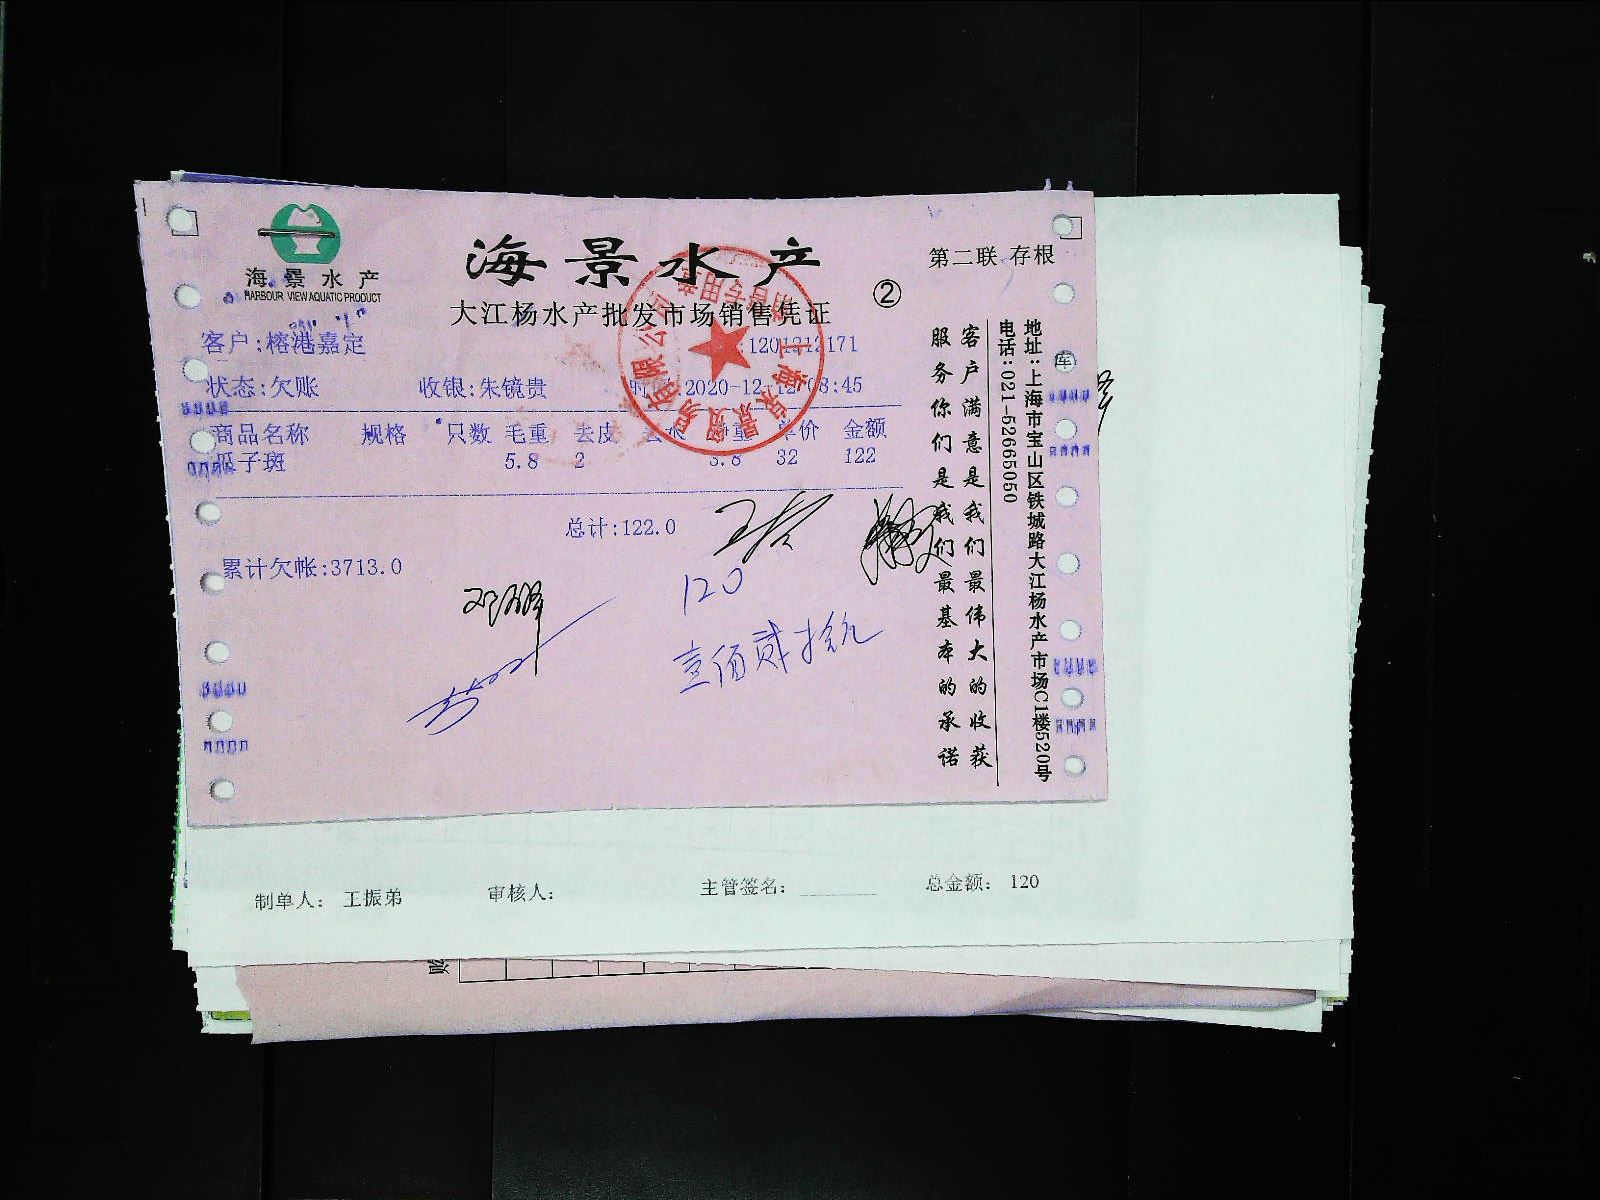 海景水产
HARBOUR VIEW AQUATIC PRODUCT
海景水产
第二联 存根
大江杨水产批发市场销售凭证
②
客户:榕港嘉定
1201212171
状态:欠账 收银:朱镜贵 2020-12-12 08:45
商品名称 规格 只数 毛重 去皮 单价 金额
瓜子斑 5.8 2 3.8 32 122
总计:122.0
累计欠帐:3713.0
120
壹佰贰拾元
客户满意是我们最伟大的收获
服务你们是我们最基本的承诺
地址:上海市宝山区铁城路大江杨水产市场C1楼520号
电话:021-52665050
库
制单人: 王振弟 审核人: 主管签名: 总金额: 120